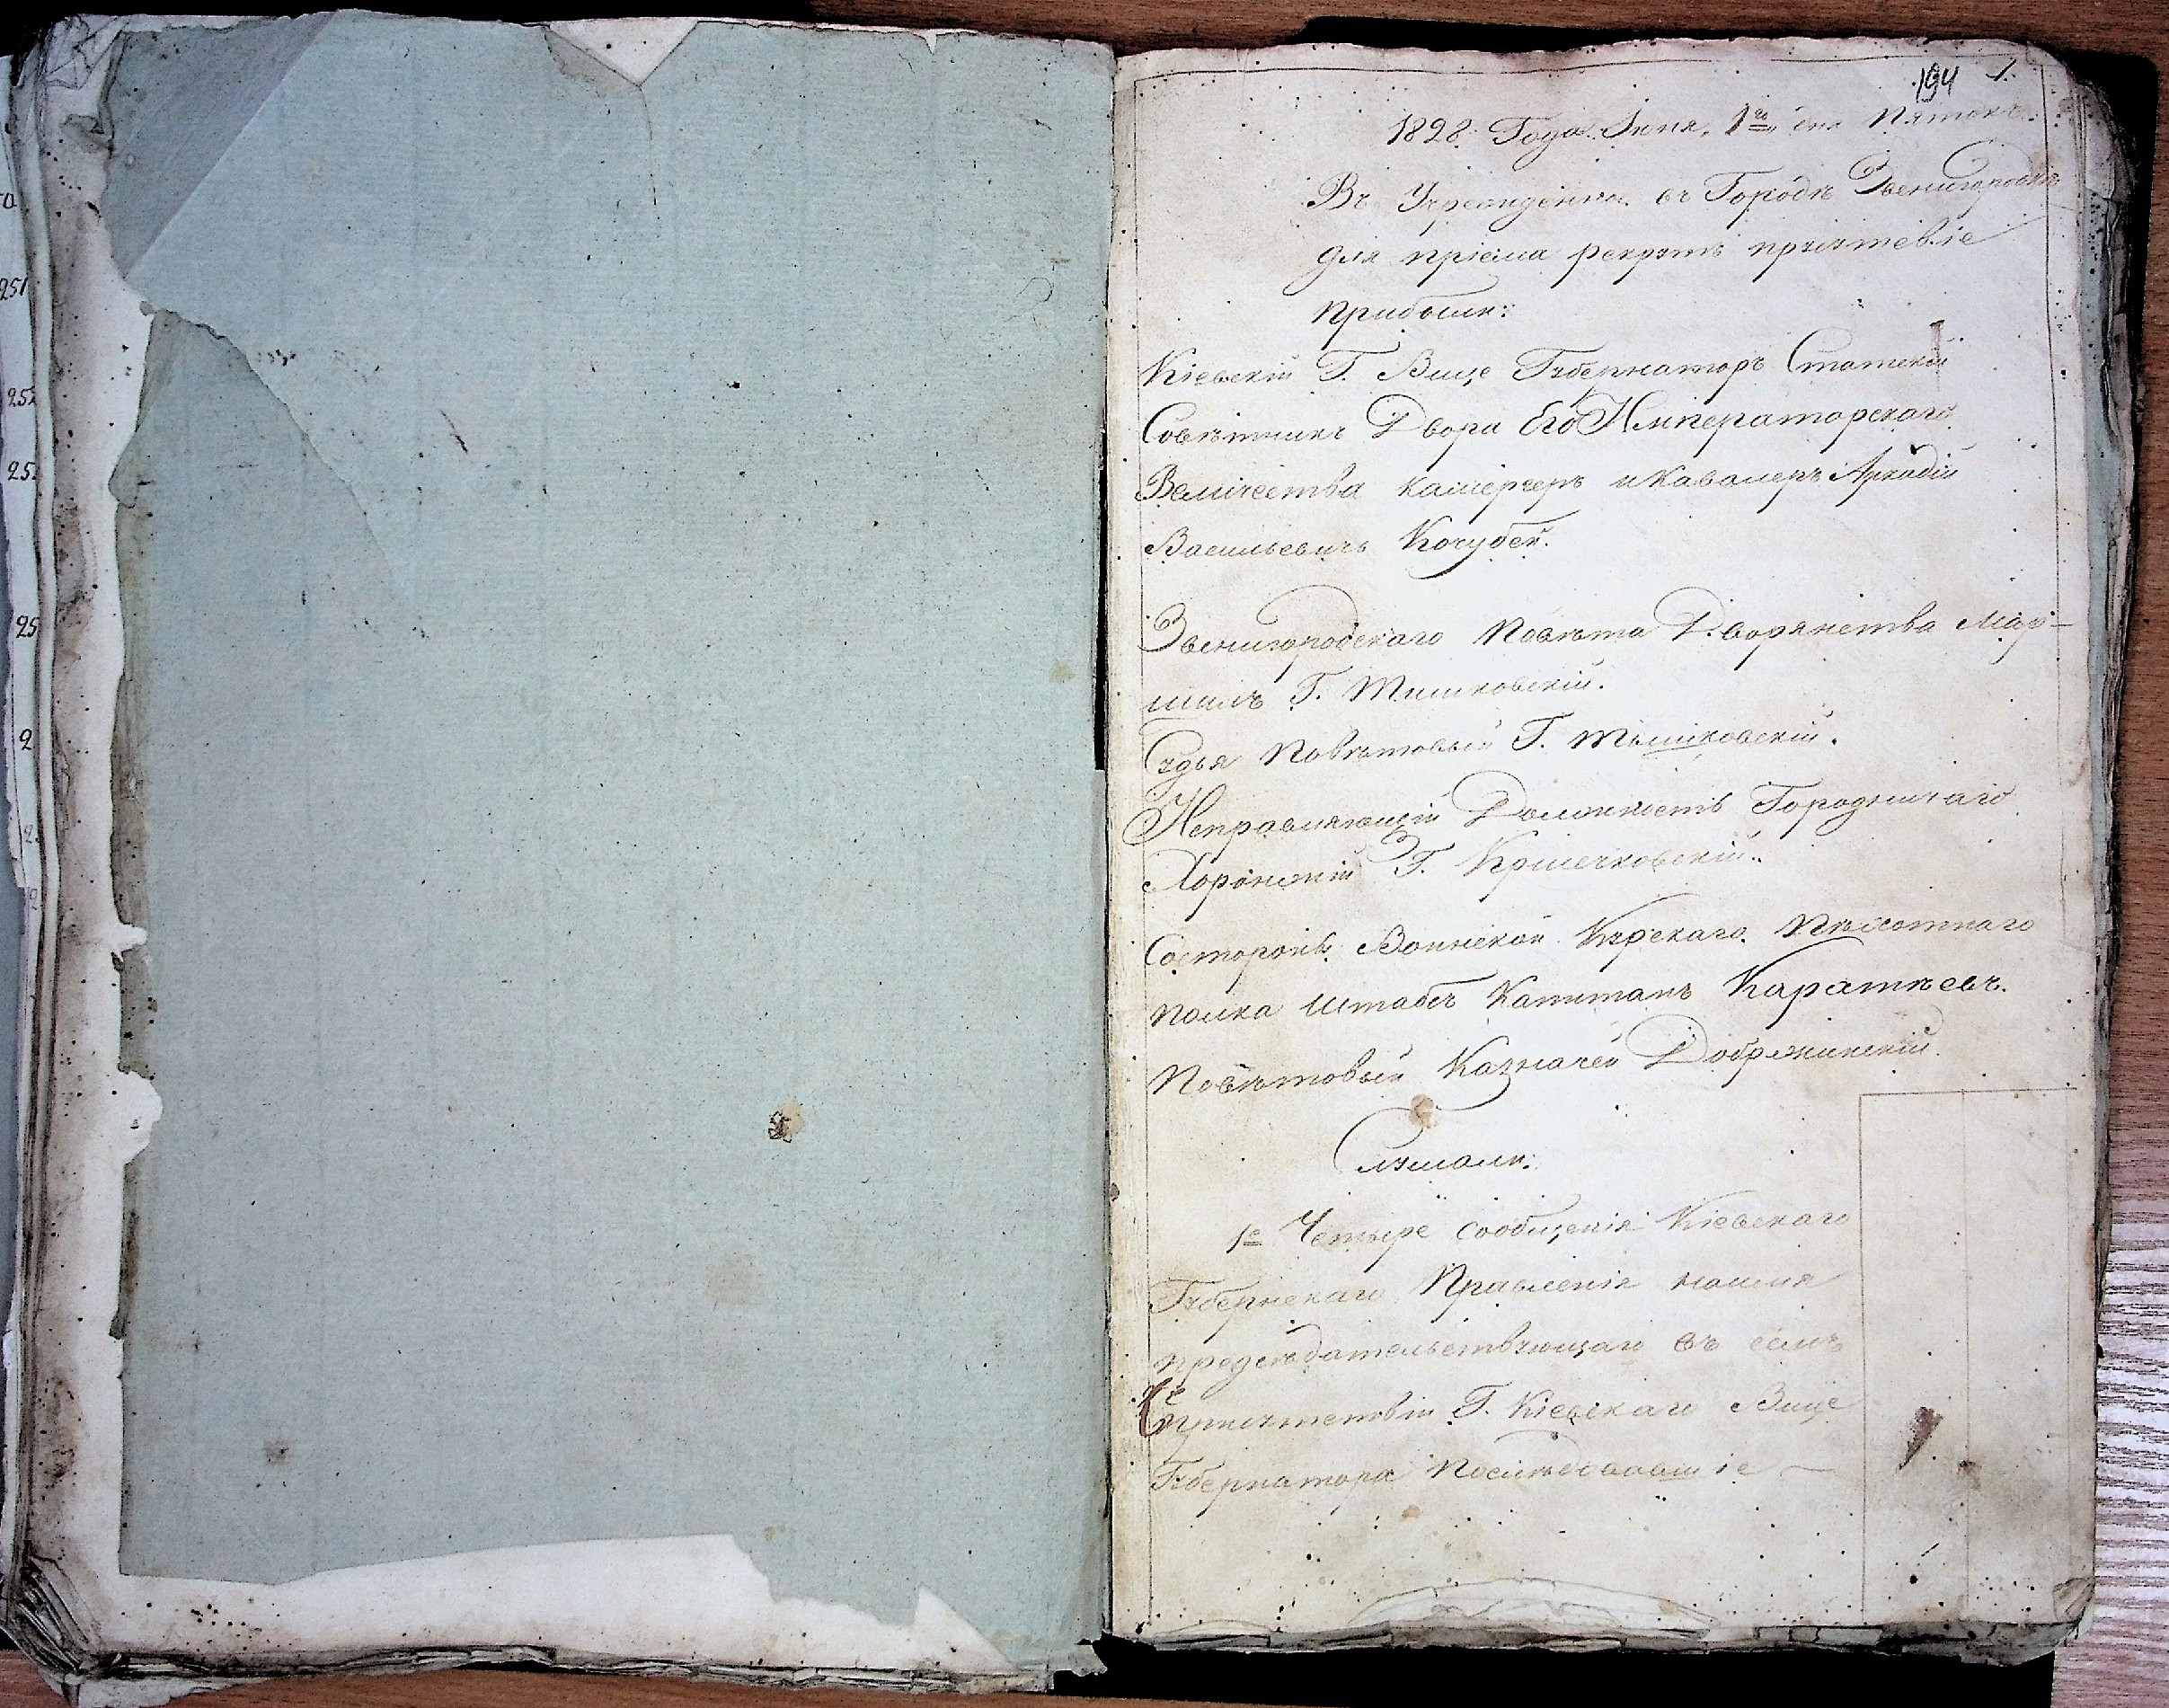 194 1.
1828 Года Іюня, 1го дня Пятокъ.
Въ Учрежденна въ Городѣ Звенигородкѣ
для пріема рекрутъ присутствіе
Прибыли:
Кіевскій Г. Вице Губернаторъ Статскій
Совѣтникъ Двора Его Императорскаго
Величества камергеръ и Кавалеръ Аркадій
Васильевичъ Кочубей.
Звенигородскаго Повѣта Дворянства Мар-
шалъ Г. Тишковскій.
Судья Повѣтовый Г. Тышковскій.
Исправляющій Должность Городничаго
Хорунжій Г.
Состороны Воинской Курскаго Пѣхотнаго
Полка Штабсъ Капитанъ Каратѣевъ.
Повѣтовый Казначей Добржинскій.
Слушали:
1е Четыре сообщенія Кіевскаго
Губернскаго Правленія наимя
предсѣдательствующаго въ семъ
присутствіи Г. Кіевскаго Вице
Губернатора Послѣдовавшіе —
251
252
25
25
2
2